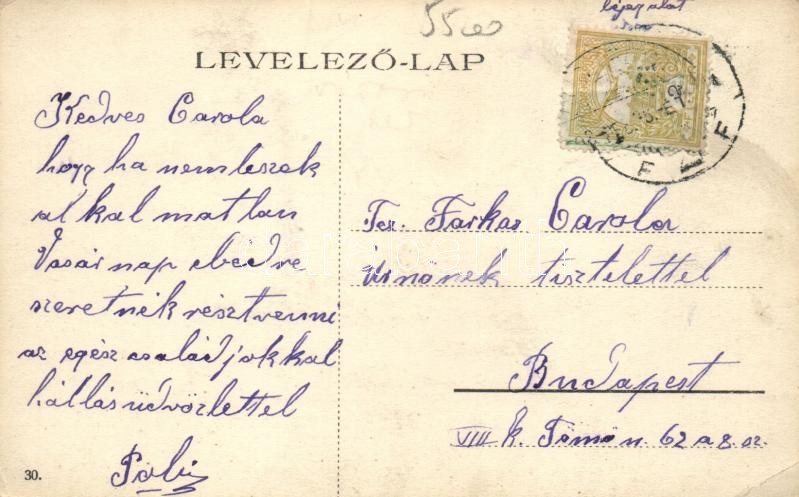 55
LEVELEZŐ-LAP
Kedves Carola
hogy ha nem leszek
al kal mat lan
Vasár nap ebéd re
szeretnék részt venni
az egész család jok kal
hállás üdvözlettel
Pali
30.
Tes. Farkas Carola
úrnőnek tisztelettel
Budapest
VIII k. Tömő u. 62 a 8 sz.